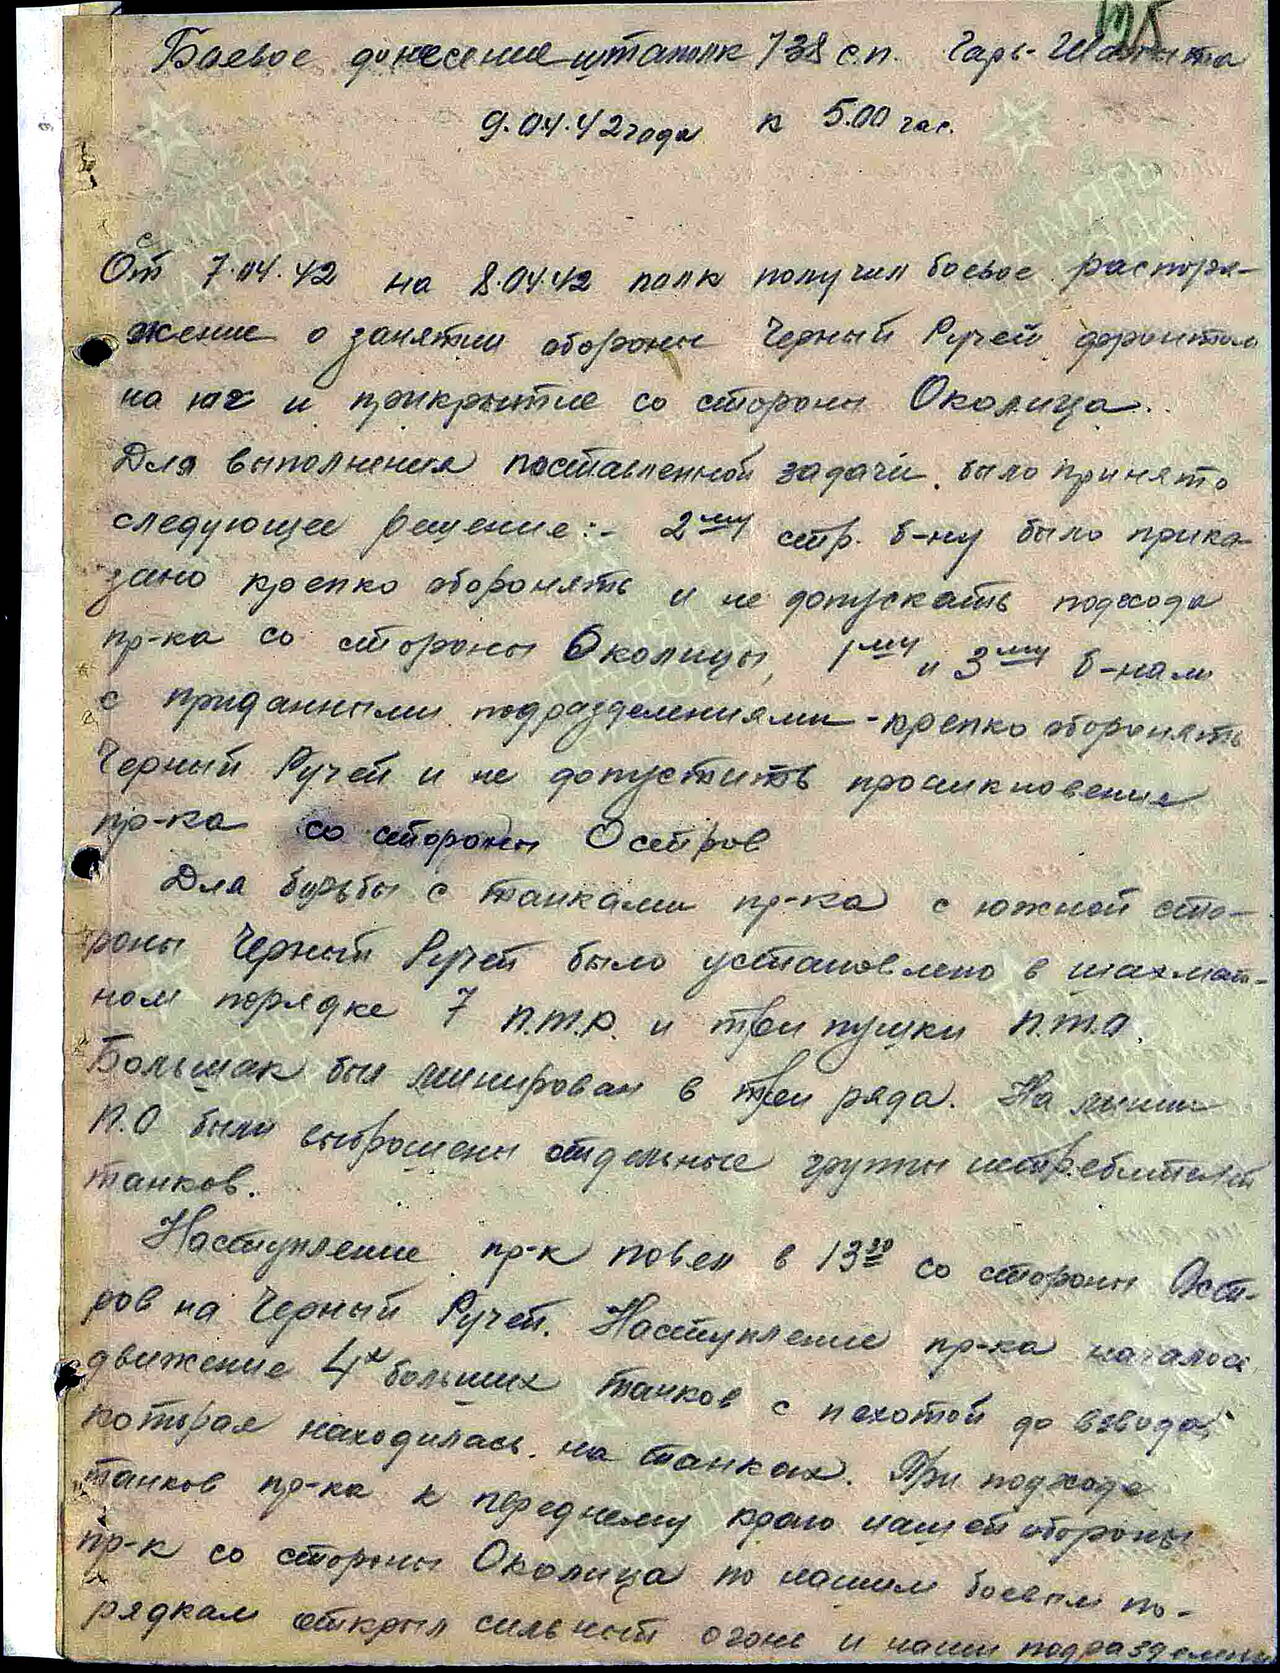 Боевое донесение штаполк 738 с.п. Гарь-
9.04.42 года к 5.00 час.
С 7.04.42 на 8.04.42 полк получил боевое распоря-
жение о занятии обороны Черный Ручей фронтом
на юг и прикрытие со стороны Околица.
Для выполнения поставленной задачи было принято
следующее решение:- 2му стр. б-ну было прика-
зано крепко оборонять и не допускать подхода
пр-ка со стороны Околицы, 1му и 3му б-нам
с приданными подразделениями - крепко оборонять
Черный Ручей и не допустить проникновение
пр-ка со стороны Остров
Для борьбы с танками пр-ка с южной сто-
роны Черный Ручей было установлено в шахмат-
ном порядке 7 п.т.р. и три пушки п.т.о.
Большак был минирован в три ряда. На линии
П.О были выброшены отдельные группы истребителей
танков.
Наступление пр-к повел в 13 30 со стороны Ост-
ров на Черный Ручей. Наступление пр-ка началось
движение 4х больших танков с пехотой до взвода,
которая находилась на танках. При подходе
танков пр-ка к переднему краю нашей обороны
пр-к со стороны Околица по нашим боевым по-
рядкам открыл сильный огонь и наши подразделения